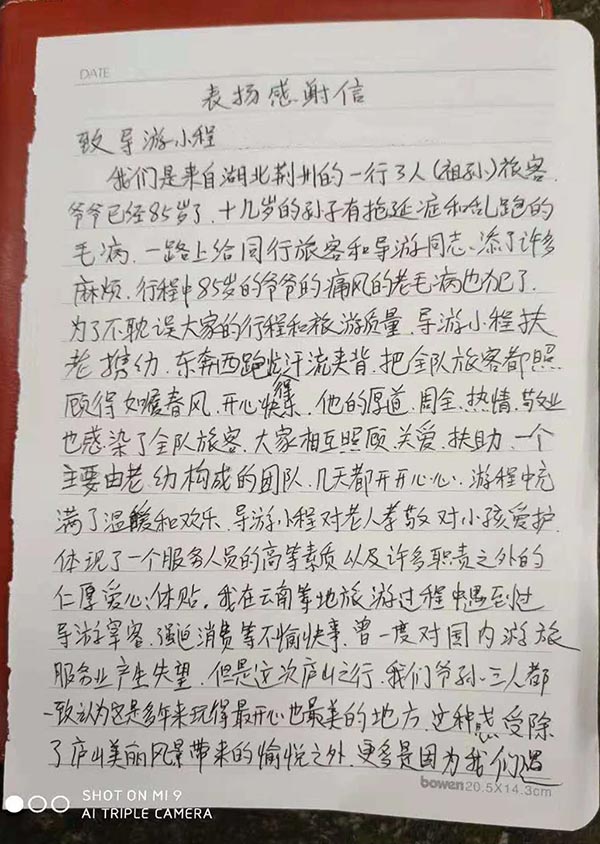 DATE
表扬感谢信
致导游小程
我们是来自湖北荆州的一行3人(祖孙)旅客.
爷爷已经85岁了,十几岁的孙子有拖延症和乱跑的
毛病,一路上给同行旅客和导游同志添了许多
麻烦.行程中85岁的爷爷的痛风的老毛病也犯了.
为了不耽误大家的行程和旅游质量,导游小程扶
老携幼,东奔西跑忙汗流夹背,把全队旅客都照
顾得如暖春风,开心快乐,他的厚道,周全,热情,敬业
也感染了全队旅客,大家相互照顾,关爱,扶助,一个
主要由老幼构成的团队,几天都开开心心,游程中充
满了温暖和欢乐,导游小程对老人孝敬对小孩爱护.
体现了一个服务人员的高等素质以及许多职责之外的
仁厚爱心,体贴。我在云南等地旅游过程中遇到过
导游宰客,强迫消费等不愉快事,曾一度对国内游旅
服务业产生失望.但是这次庐山之行,我们爷孙三人都
一致认为这是多年来玩得最开心也最美的地方,这种感受除
了庐山美丽风景带来的愉悦之外,更多是因为我们遇
bowen 20.5X14.3cm
SHOT ON MI 9
AI TRIPLE CAMERA